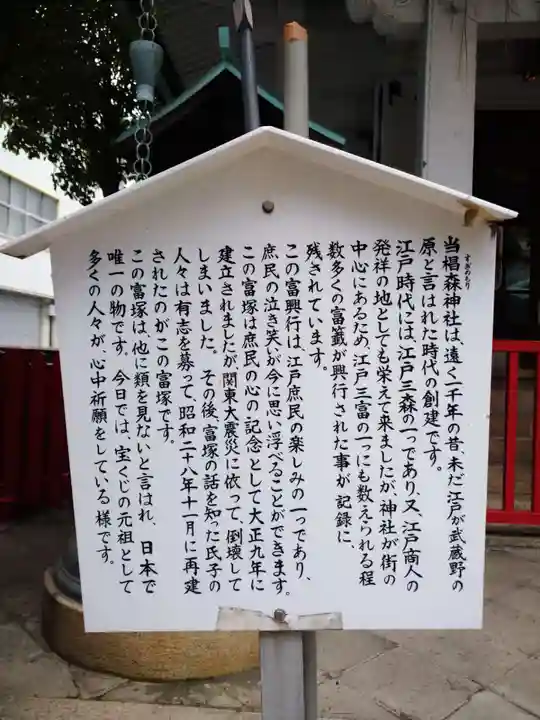 すぎのもり
当椙森神社は、遠く一千年の昔、未だ江戸が武蔵野の
原と言はれた時代の創建です。
江戸時代には、江戸三森の一つであり、又、江戸商人の
発祥の地としても栄えて来ましたが、神社が街の
中心にあるため、江戸三富の一つにも数えられる程
数多くの富籤が興行された事が記録に
残されています。
この富興行は、江戸庶民の楽しみの一つであり、
庶民の泣き笑いが今に思い浮べることができます。
この富塚は庶民の心の記念として大正九年に
建立されましたが関東大震災に依って、倒壊して
しまいました。その後、富塚の話を知った氏子の
人々は有志を募って、昭和二十八年十一月に再建
されたのがこの富塚です。
この富塚は、他に類を見ないと言はれ、日本で
唯一の物です。今日では、宝くじの元祖として
多くの人々が、心中祈願をしている様です。